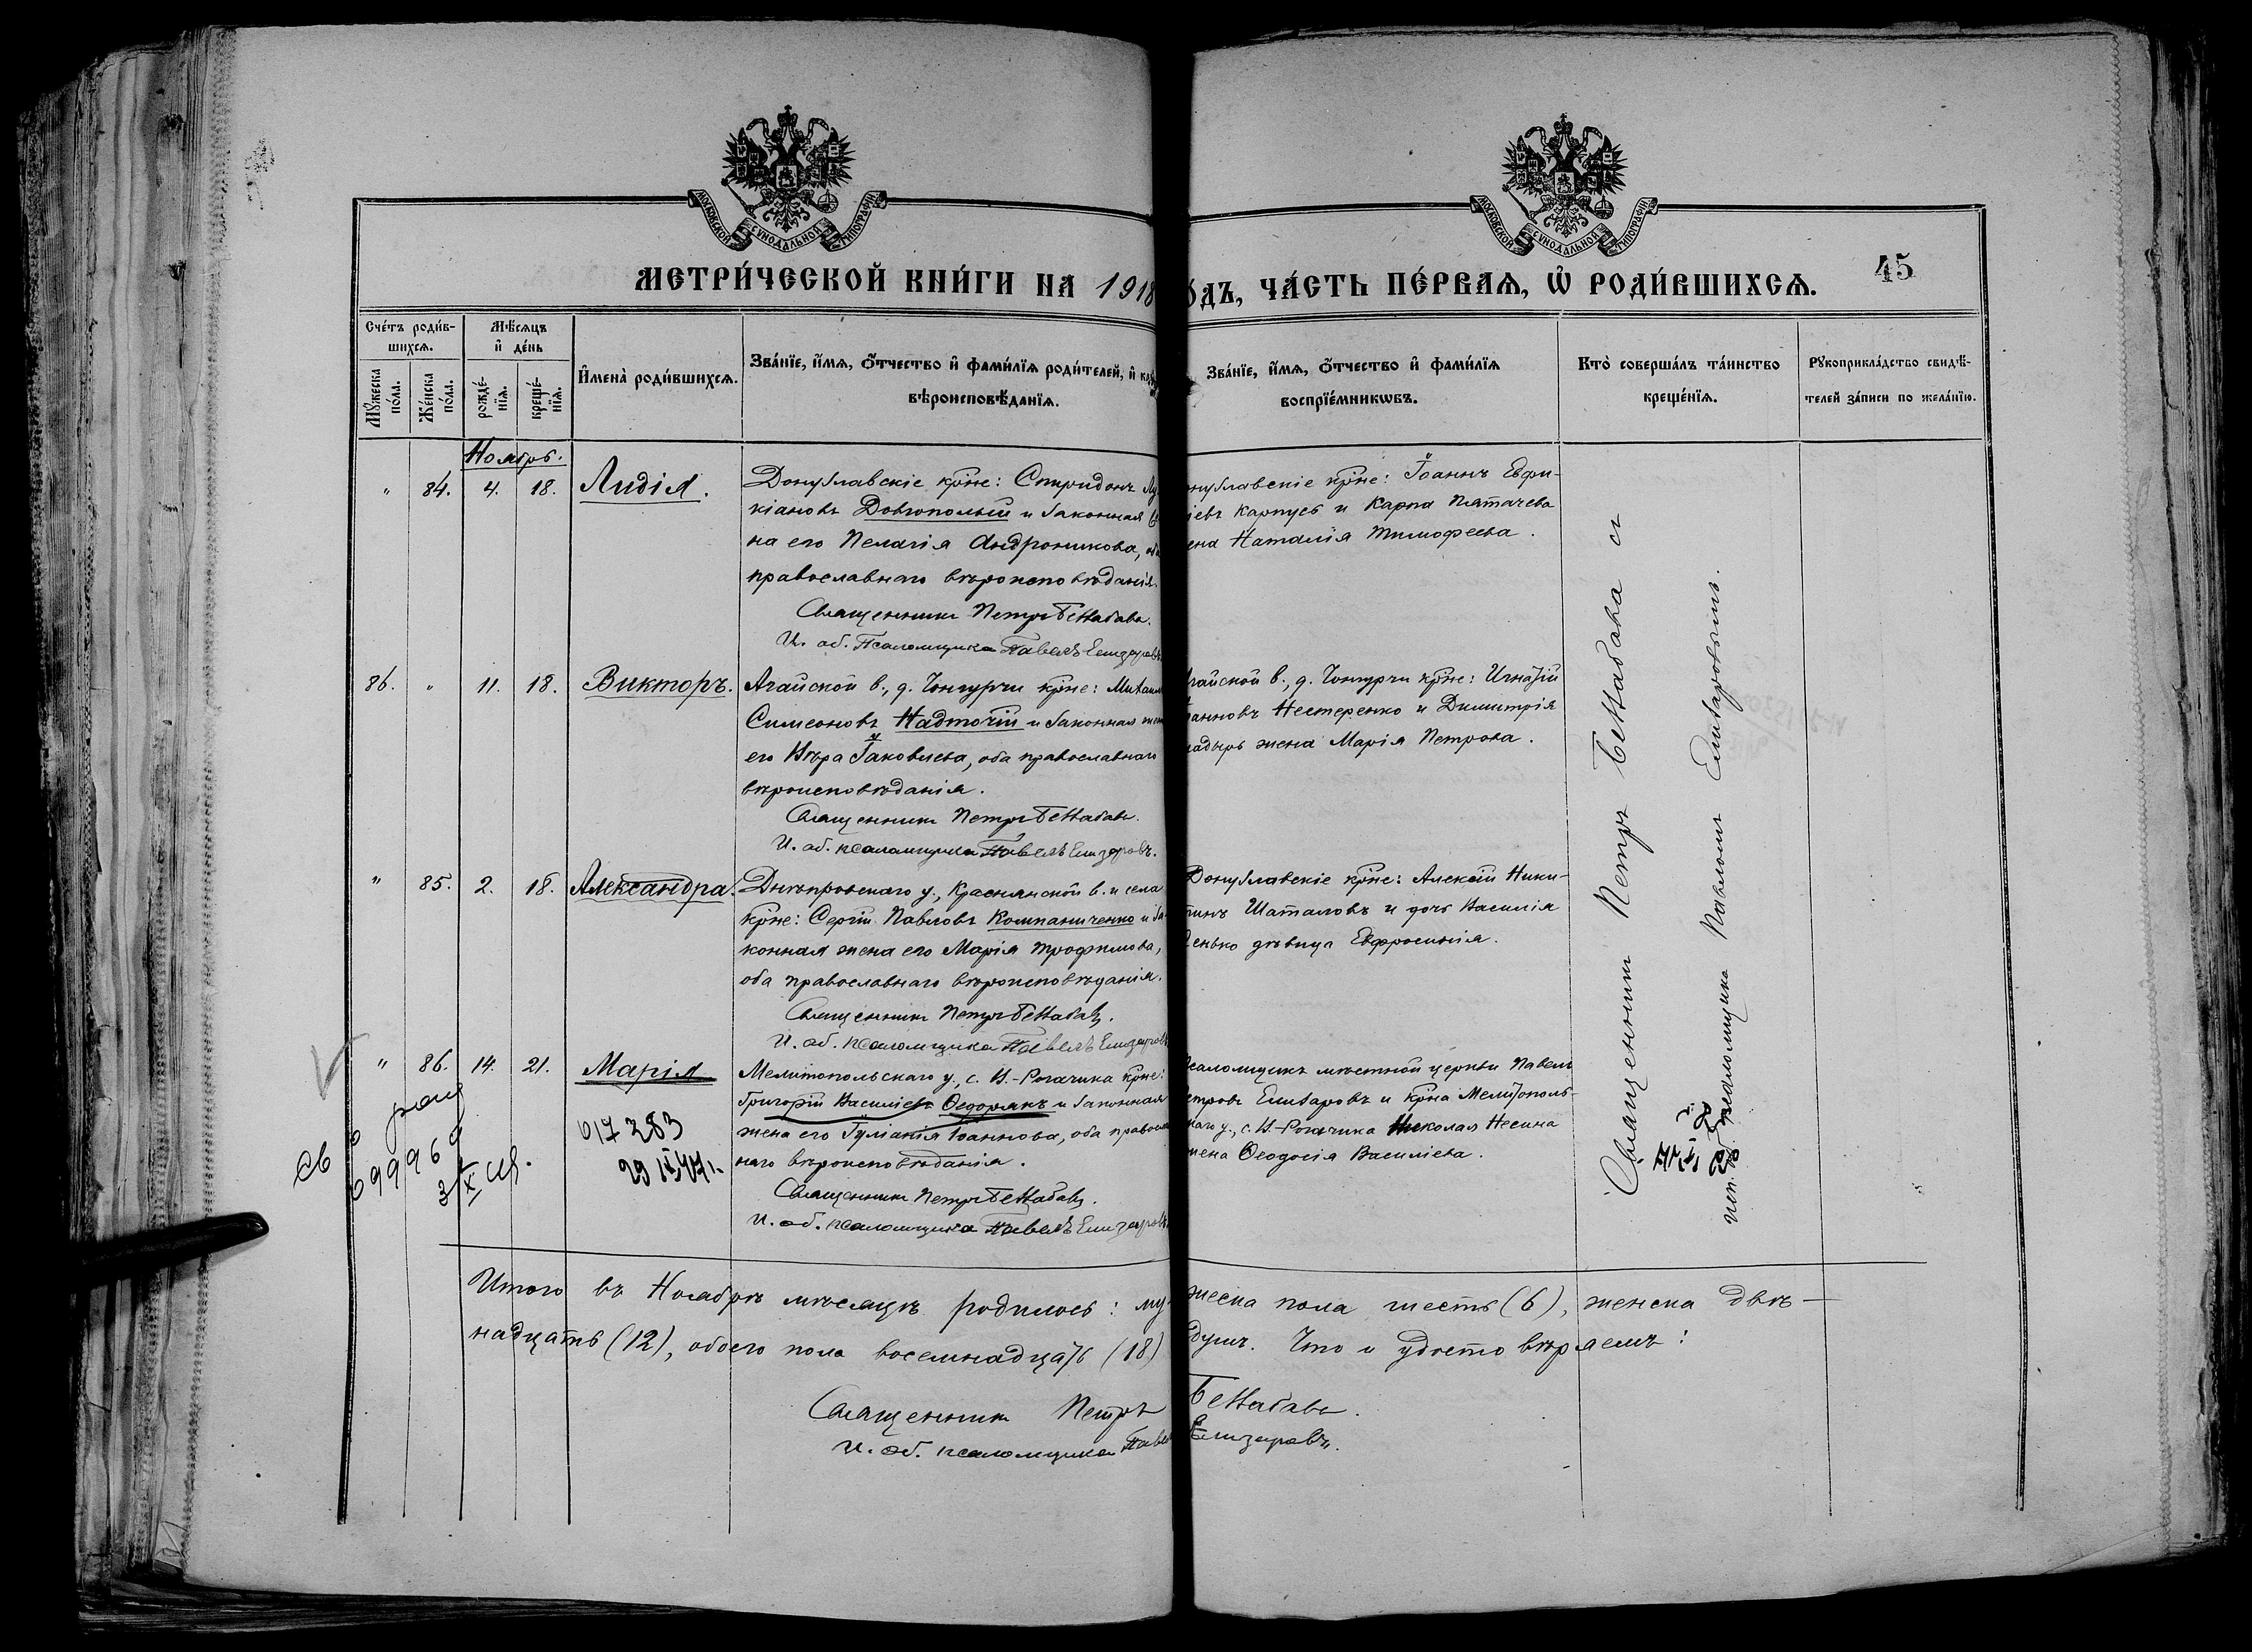 МОСКОВСКОЙ СУНОДАЛЬНОЙ ТИПОГРАФІИ
МОСКОВСКОЙ СУНОДАЛЬНОЙ ТИПОГРАФІИ
МЕТРИ́ЧЕСКОЙ КНИ́ГИ НА 1918
О́ДЪ, ЧА́СТЬ ПЕ́РВАѦ, Ѡ҆ РОДИ́ВШИХСѦ.
45
Сче́тъ роди́в-
шихсѧ.
Мꙋ́жеска
по́ла.
Же́нска
по́ла.
Мѣ́сѧцъ
и҆ де́нь
рожде́-
нїѧ.
креще́-
нїѧ.
И҆мена̀ роди́вшихсѧ.
Зва́нїе, и҆́мѧ, ѻ҆́тчество и҆ фами́лїѧ роди́телей, и҆
вѣроисповѣ́данїѧ.
Зва́нїе, и҆́мѧ, ѻ҆́тчество и҆ фами́лїѧ
воспрїе́мникѡвъ.
Кто̀ соверша́лъ та́инство
креще́нїѧ.
Рꙋкоприкла́дство свидѣ́-
телей за́писи по жела́нїю.
Ноябрь.
" 84. 4. 18. Лидія.
Донузлавскіе крне: Спиридонъ Лу
кіановъ Довгополый и законная
на его Пелагія Андроникова,
православнаго вѣроисповѣданія.
Священникъ Петръ
И. об. Псаломщика Павелъ Елизаровъ
онузлавскіе крне: Іоаннъ Евфи-
іевъ Карпусь и Карпа Пятачева
ена Наталія Тимофеева.
86. " 11. 18. Викторъ.
Агайской в., д. Чонгурчи крне: Михаил
Симеоновъ Надточій и законная жен
его Вѣра Іаковлева, оба православнаго
вѣроисповѣданія.
Священникъ Петръ
И. об. псаломщика Павелъ Елизаровъ.
гайской в., д. Чонгурчи крне: Игнатій
анновъ Нестеренко и Димитрія
адырь жена Марія Петрова.
" 85. 2. 18. Александра.
Днѣпровскаго у., Краснянской в. и села
крне: Сергій Павловъ Компаниченко и за-
конная жена его Марія Трофимова,
оба православнаго вѣроисповѣданія.
Священникъ Петръ
И. об. псаломщика Павелъ Елизаровъ
Донузлавскіе крне: Алексій Ники-
тинъ Шаталовъ и дочь Василія
енько дѣвица Евфросинія.
" 86. 14. 21. Марія
Мелитопольскаго у., с. В.-Рогачика крне:
Григорій Василіевъ Федорякъ и законная
жена его Іуліанія Іоаннова, оба правосла
наго вѣроисповѣданія.
Священникъ Петръ
И. об. псаломщика Павелъ Елизаровъ
саломщикъ мѣстной церкви Павелъ
етровъ Елизаровъ и крна Мелитополь-
наго у., с. В.-Рогачика Николая Несина
жена Ѳеодосія Василіева.
617283
Священникъ Петръ съ
исп. об. псаломщика Павломъ Елизаровымъ.
Итого въ Ноябрѣ мѣсяцѣ родилось: му
жеска пола шесть (6), женска двѣ-
надцать (12), обоего пола восемнадцать (18)
душъ. Что и удостовѣряемъ:
Священникъ Петръ
И. об. псаломщика Павелъ Елизаровъ.